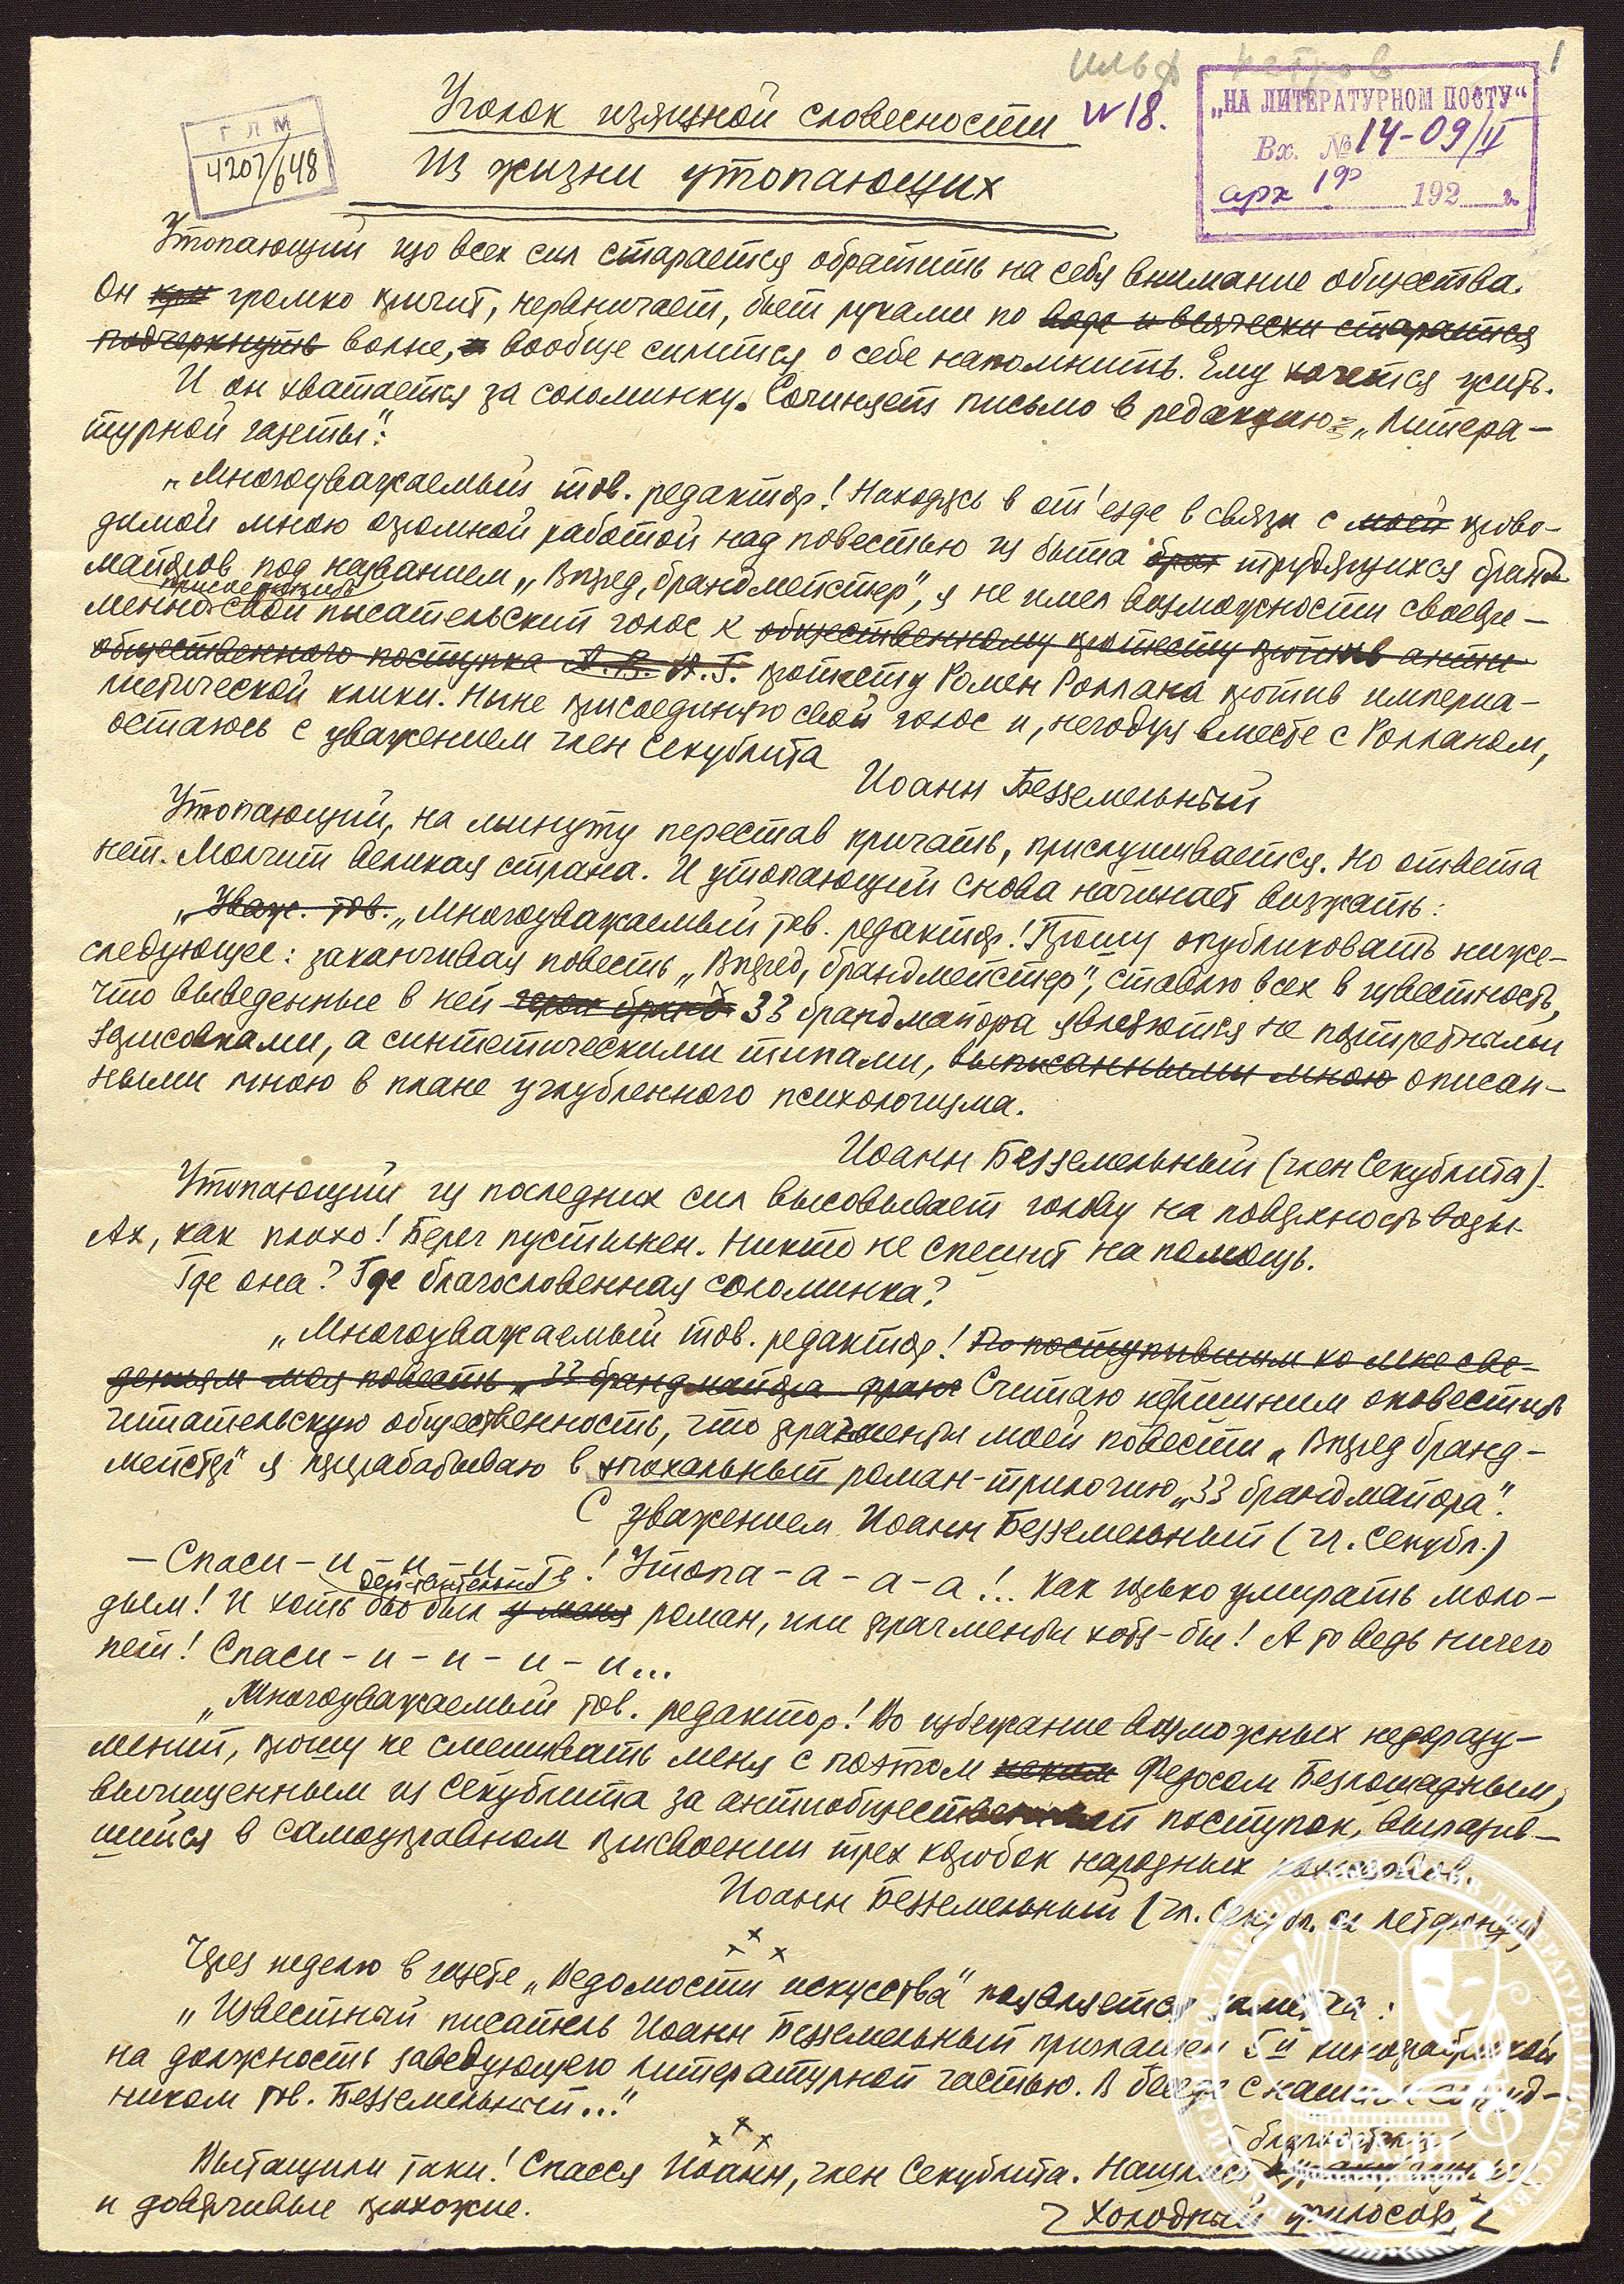 Ильф Петров 1
Уголок изящной словесности
N 18.
„НА ЛИТЕРАТУРНОМ ПОСТУ“
Вх. № 14-09/II
арх 192 г.
ГЛМ
4207/648
Из жизни утопающих
Утопающий изо всех сил старается обратить на себя внимание общества.
Он кри громко кричит, нервничает, бьет руками по воде и всячески старается
подчеркнуть волне, и вообще силится о себе напомнить. Ему хочется жить.
И он хватается за соломинку. Сочиняет письмо в редакцию „Литера-
турной газеты“:
„Многоуважаемый тов. редактор! Находясь в от'езде в связи с моей прово-
димой мною огромной работой над повестью из быта трудящихся бранд-
майоров под названием „Вперед, брандмейстер“, я не имел возможности своевре-
присоединить
менно свой писательский голос к общественному протесту против анти-
общественного поступка А.В. А.Г. протесту Ромен Роллана против империа-
листической клики. Ныне присоединяю свой голос и, негодуя вместе с Ролланом,
остаюсь с уважением член Секублита
Иоанн Безземельный
Утопающий, на минуту перестав кричать, прислушивается. Но ответа
нет. Молчит великая страна. И утопающий снова начинает визжать:
„Уваж. тов. „Многоуважаемый тов. редактор! Прошу опубликовать ниже-
следующее: заканчивая повесть „Вперед, брандмейстер“, ставлю всех в известность,
что выведенные в ней герои бранд 33 брандмайора являются не портретными
зарисовками, а синтетическими типами, выписанными мною описан-
ными мною в плане углубленного психологизма.
Иоанн Безземельный (член Секублита).
Утопающий из последних сил высовывает голову на поверхность воды.
Ах, как плохо! Берег пустынен. Никто не спешит на помощь.
Где она? Где благословенная соломинка?
„Многоуважаемый тов. редактор! По поступившим ко мне све-
дениям моя повесть „33 брандмайора Считаю нелишним оповестить
читательскую общественность, что фрагменты моей повести „Вперед бранд-
мейстер“ я перерабатываю в эпохальный роман-трилогию „33 брандмайора“.
С уважением Иоанн Безземельный (чл. Секубл.)
— Спаси-и-и-и-те! Утопа-а-а-а!.. Как горько умирать моло-
действительно
дым! И хоть бы был у меня роман, или фрагменты хотя-бы! А то ведь ничего
нет! Спаси-и-и-и-и...
„Многоуважаемый тов. редактор! Во избежание возможных недоразу-
мений, прошу не смешивать меня с поэтом неким Федосом Безлошадным,
вычищенным из Секублита за антиобщественный поступок, выразив-
шийся в самоуправном присвоении трех коробок народных
Иоанн Безземельный (чл. Секубл. и Литфонда)
x x x
Через неделю в газете „Ведомости искусства“ появляется заметка:
„Известный писатель Иоанн Безземельный приглашен 5й кинофабрикой
на должность заведующего литературной частью. В беседе с нашим сотруд-
ником тов. Безземельный...“
x x x
благодетели
Вытащили таки! Спасся Иоанн, член Секублита. Нашлись
и доверчивые прохожие.
Холодный философ